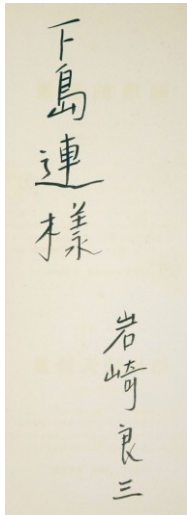 下島連様
岩崎良三